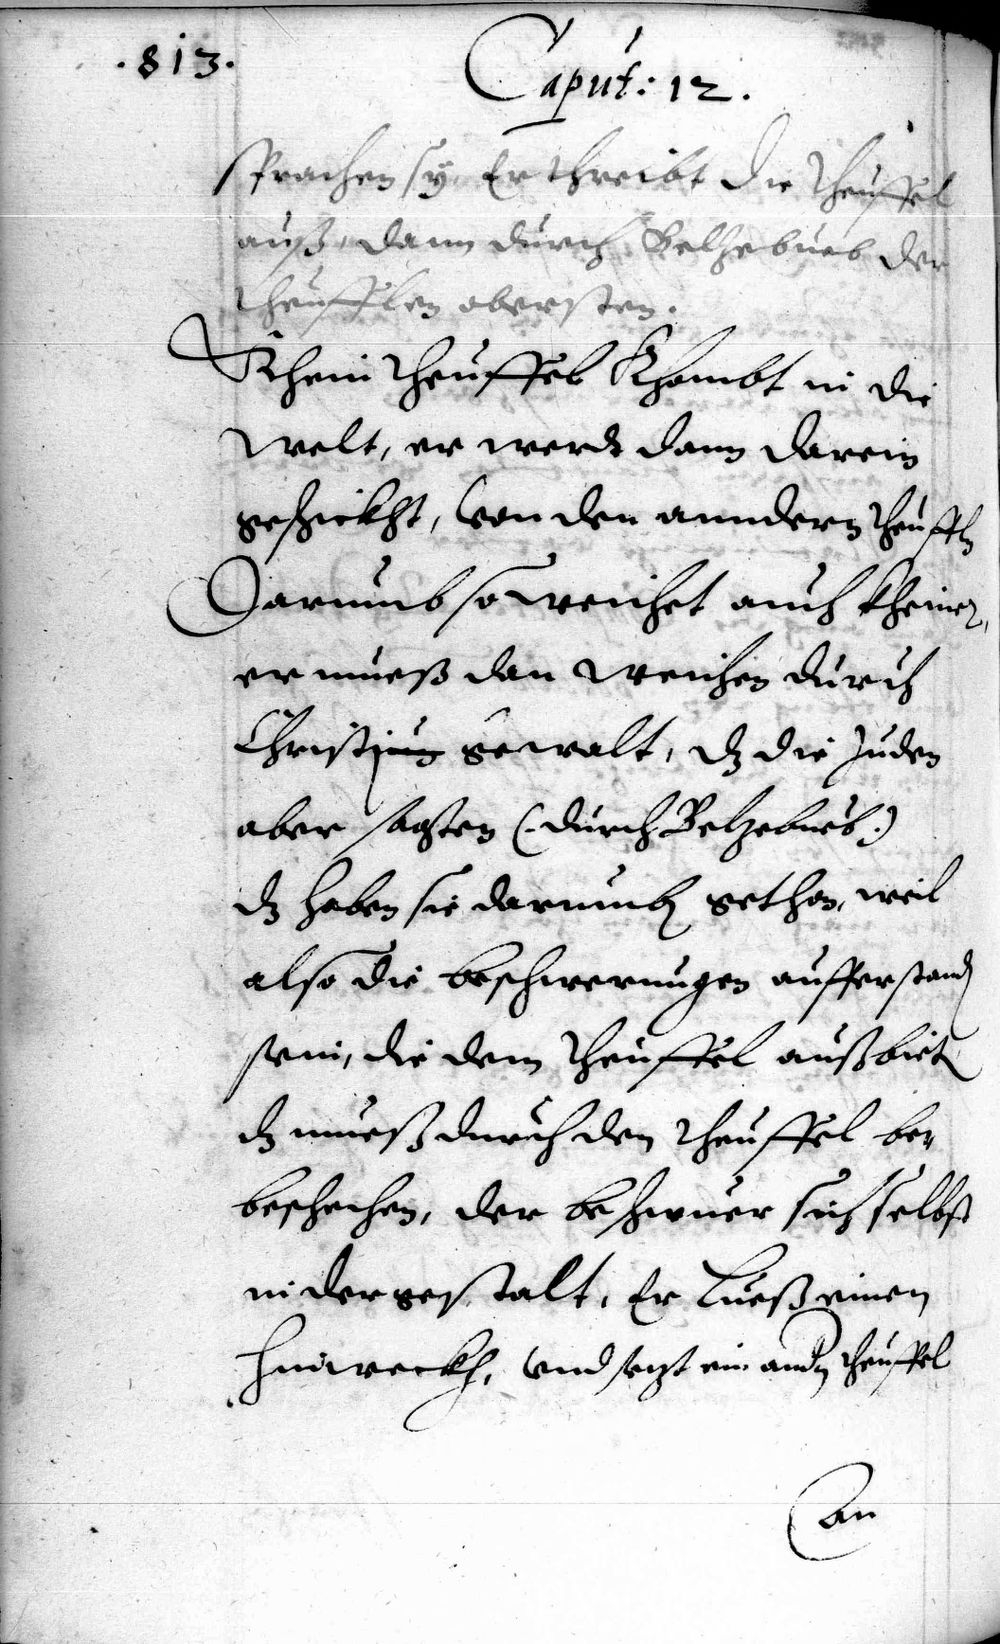 .813.
Caput: 12.
sprachen sÿ, Er threibt die theuffel
auß, dann durch Belzebueb der
theufflen obersten.
Khein theuffel Khombt in die
welt, er werdt dann darein
geschickht, von den anndern theuffln
Darumb so weichet auch kheiner,
er mueß dan weichen durch
Christium gewalt, dz die Juden
aber sagten (durch Belzebueb.)
dz haben sie darumb gethon, weil
also die beschwerungen aufferstand
sein, die dem theuffel außbiet
dz mueß durch den theuffel be-
beschechen, der beschwuer sich selbst
in der gestalt, Er Lueß einen
hinweckh, vnd sezt ein andern theuffel
an